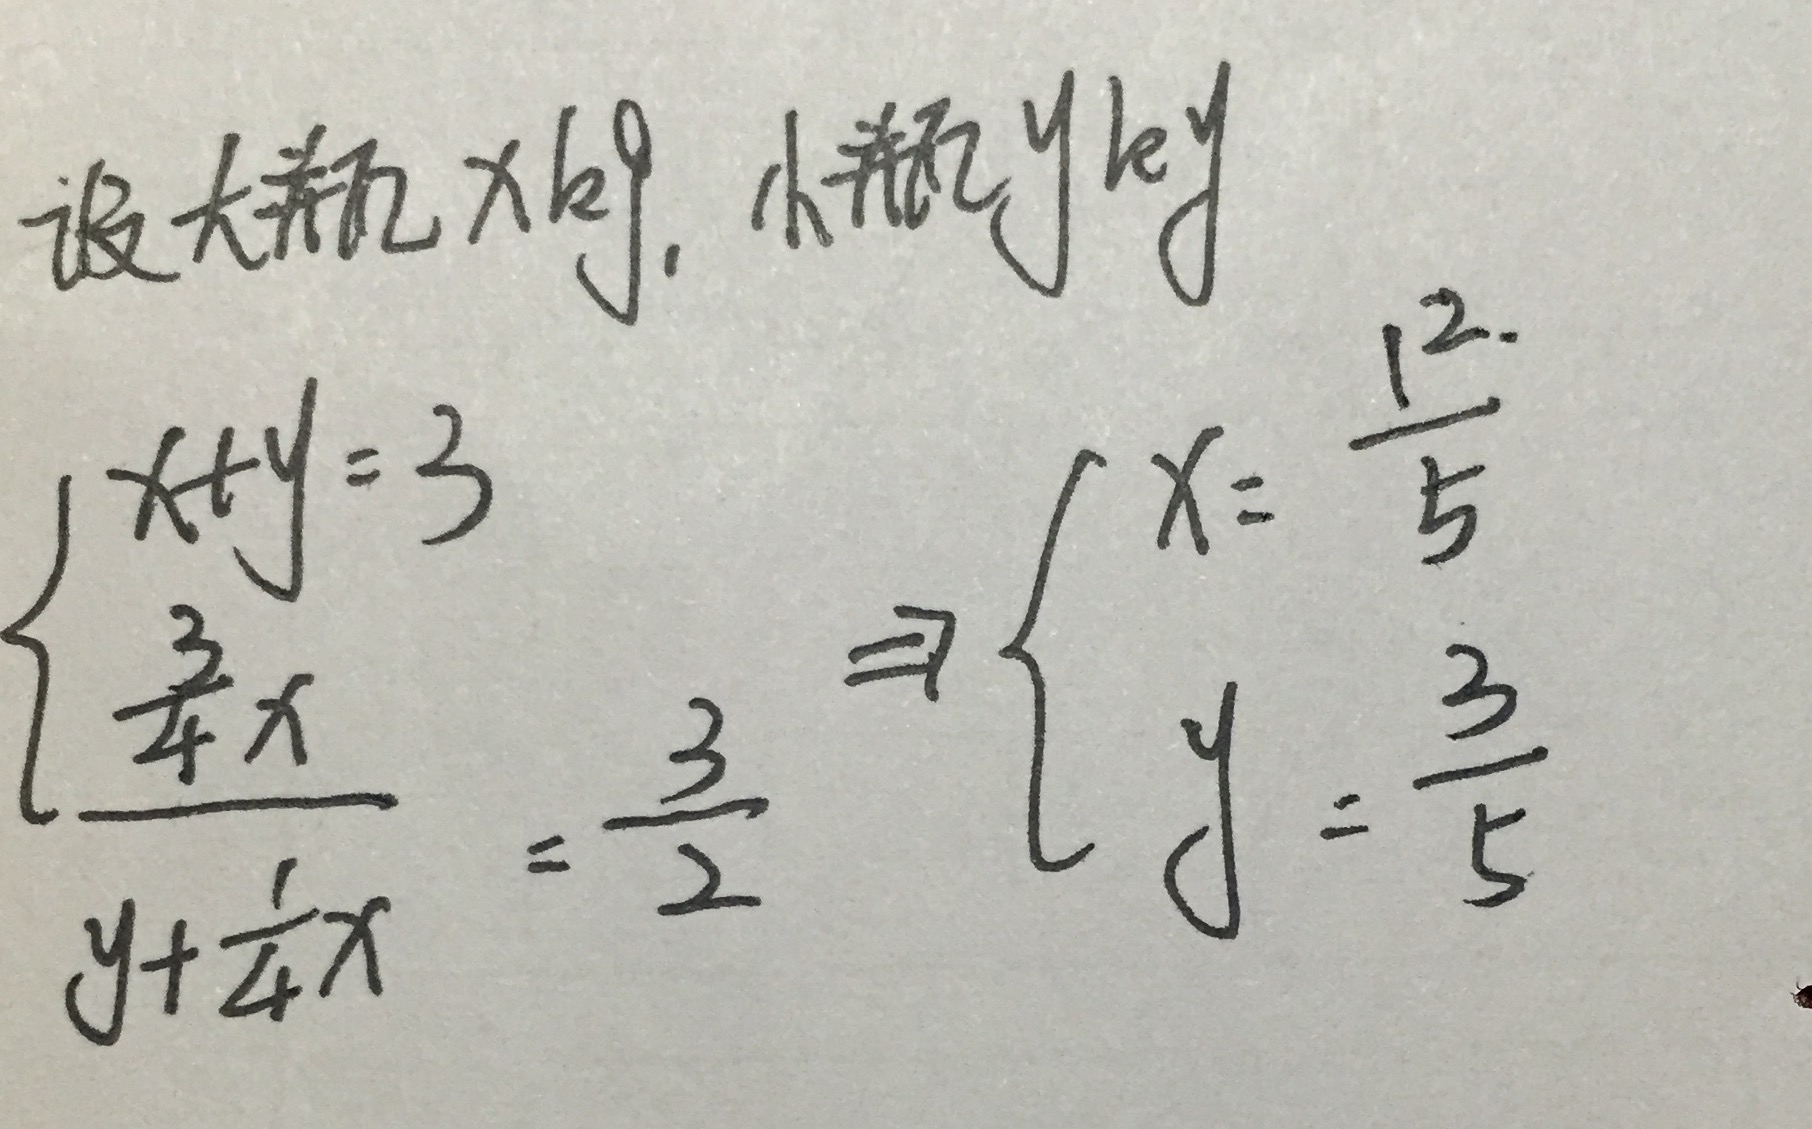 设大瓶 x kg, 小瓶 y kg
{ x+y=3
(3/4 x)/(y+1/4 x) = 3/2
⇒ { x= 12/5
y = 3/5